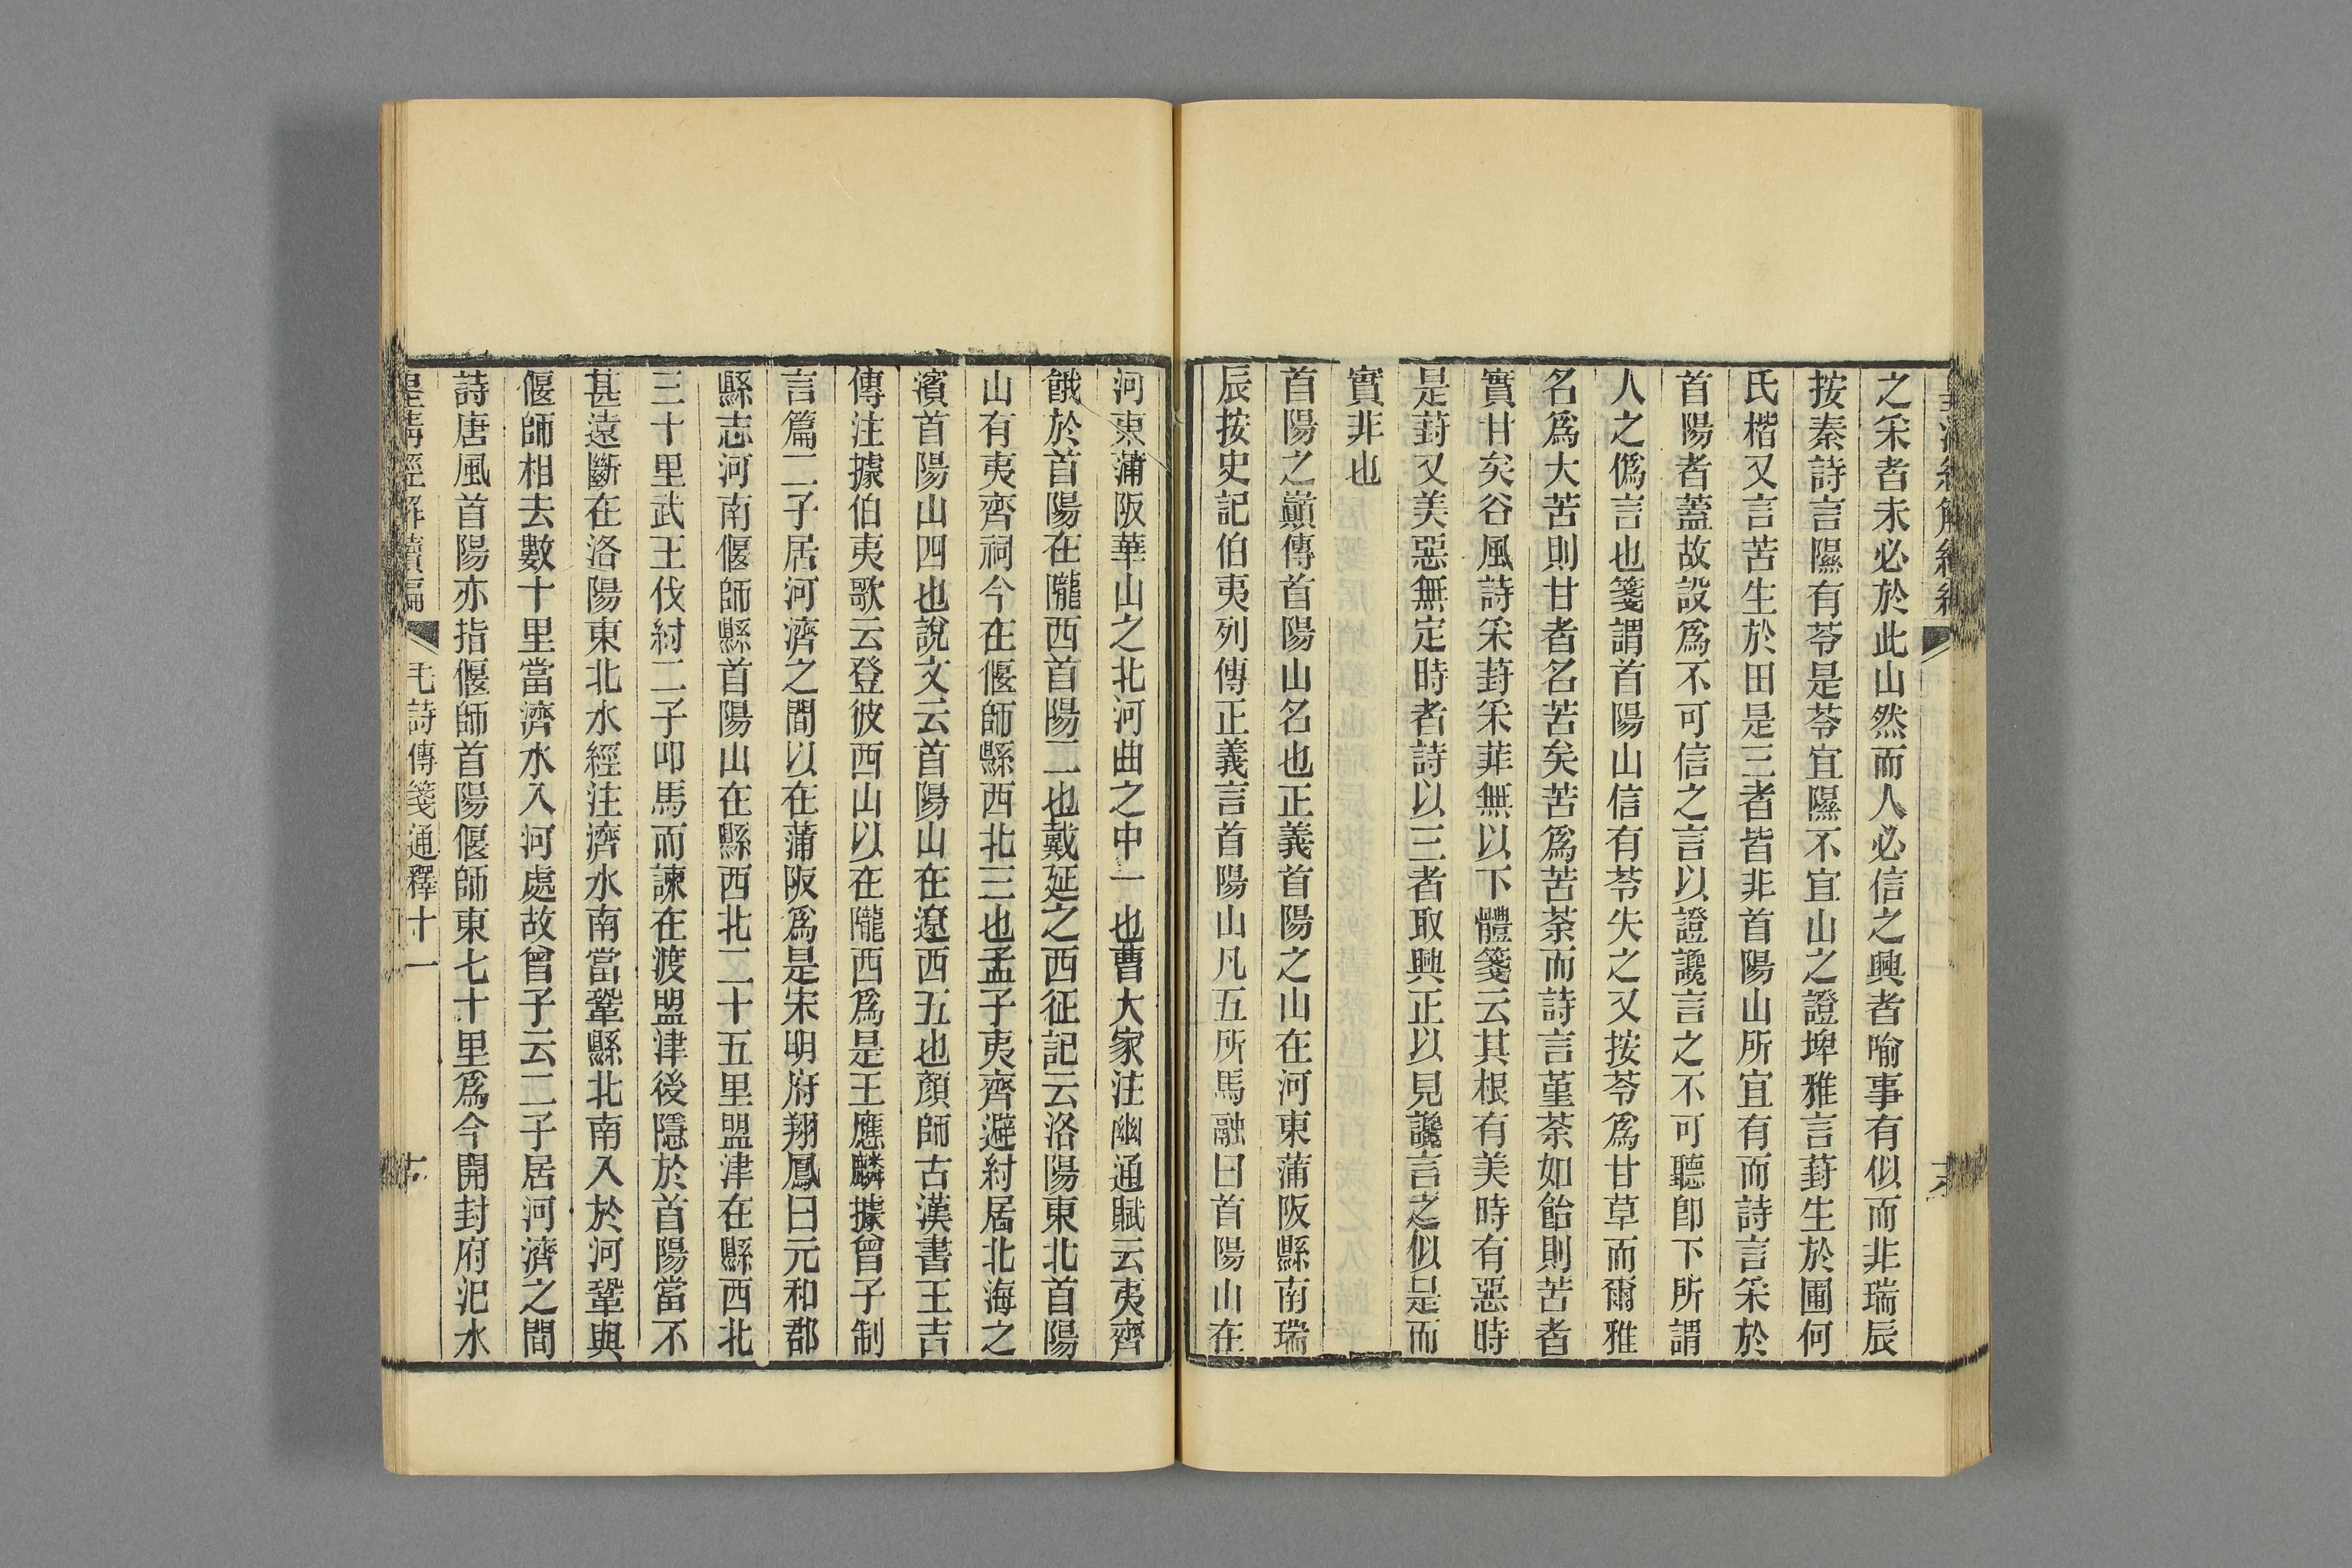 之采者未必於此山然而人必信之興者喻事有似而非瑞辰
按秦詩言隰有苓是苓宜隰不宜山之證埤雅言葑生於圃何
氏楷又言苦生於田是三者皆非首陽山所宜有而詩言采於
首陽者蓋故設爲不可信之言以證讒言之不可聽卽下所謂
人之僞言也箋謂首陽山信有苓失之又按苓爲甘草而爾雅
名爲大苦則甘者名苦矣苦爲苦荼而詩言堇荼如飴則苦者
實甘矣谷風詩采葑采菲無以下體箋云其根有美時有惡時
是葑又美惡無定時者詩以三者取興正以見讒言之似是而
實非也
首陽之巔傳首陽山名也正義首陽之山在河東蒲阪縣南瑞
辰按史記伯夷列傳正義言首陽山凡五所馬融曰首陽山在
河東蒲阪華山之北河曲之中一也曹大家注幽通賦云夷齊
餓於首陽在隴西首陽二也戴延之西征記云洛陽東北首陽
山有夷齊祠今在偃師縣西北三也孟子夷齊避紂居北海之
濱首陽山四也說文云首陽山在遼西五也顏師古漢書王吉
傳注據伯夷歌云登彼西山以在隴西爲是王應麟據曾子制
言篇二子居河濟之間以在蒲阪爲是宋明府翔鳳曰元和郡
縣志河南偃師縣首陽山在縣西北二十五里盟津在縣西北
三十里武王伐紂二子叩馬而諫在渡盟津後隱於首陽當不
甚遠斷在洛陽東北水經注濟水南當鞏縣北南入於河鞏與
偃師相去數十里當濟水入河處故曾子云二子居河濟之間
詩唐風首陽亦指偃師首陽偃師東七十里爲今開封府汜水
皇淸經解續編 毛詩傳箋通釋十一